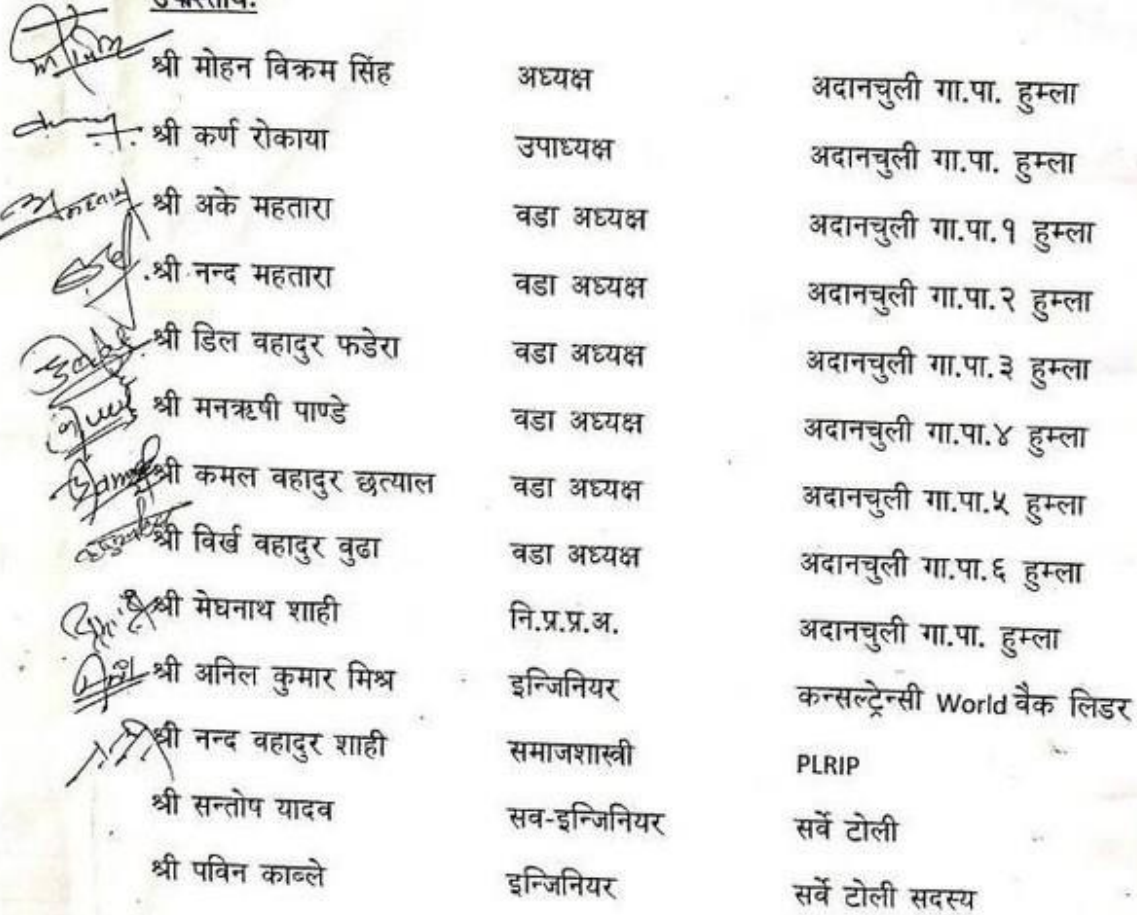 उपस्तिथिः
श्री मोहन विक्रम सिंह अध्यक्ष अदानचुली गा.पा. हुम्ला
श्री कर्ण रोकाया उपाध्यक्ष अदानचुली गा.पा. हुम्ला
श्री अके महतारा वडा अध्यक्ष अदानचुली गा.पा.१ हुम्ला
श्री नन्द महतारा वडा अध्यक्ष अदानचुली गा.पा.२ हुम्ला
श्री डिल वहादुर फडेरा वडा अध्यक्ष अदानचुली गा.पा.३ हुम्ला
श्री मनऋषी पाण्डे वडा अध्यक्ष अदानचुली गा.पा.४ हुम्ला
श्री कमल वहादुर छत्याल वडा अध्यक्ष अदानचुली गा.पा.५ हुम्ला
श्री विर्ख वहादुर वुढा वडा अध्यक्ष अदानचुली गा.पा.६ हुम्ला
श्री मेघनाथ शाही नि.प्र.प्र.अ. अदानचुली गा.पा. हुम्ला
श्री अनिल कुमार मिश्र इन्जिनियर कन्सल्ट्रेन्सी World वैक लिडर
श्री नन्द वहादुर शाही समाजशास्त्री PLRIP
श्री सन्तोष यादव सव-इन्जिनियर सर्वे टोली
श्री पविन काब्ले इन्जिनियर सर्वे टोली सदस्य